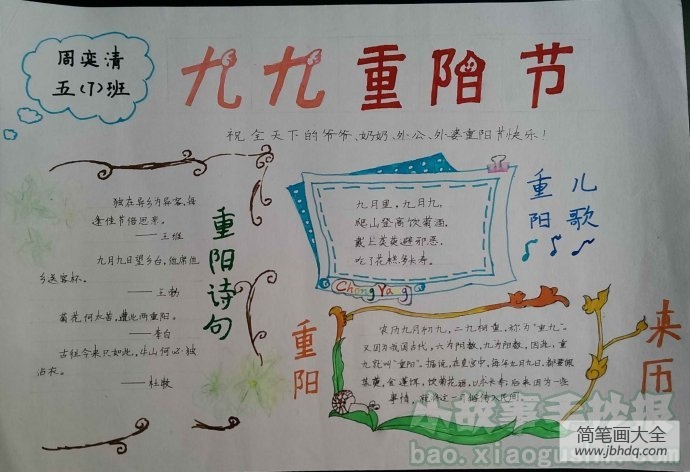 周奕清
五(7)班
九九重阳节
祝全天下的爷爷、奶奶、外公、外婆重阳节快乐!
独在异乡为异客,每
逢佳节倍思亲。
——王维
九月九日望乡台,他席他
乡送客杯。
——王勃
菊花何太苦,遭此两重阳。
——李白
古往今来只如此,牛山何必独
沾衣。
——杜牧
重阳诗句
九月里,九月九,
爬山登高饮菊酒。
戴上茱萸避邪恶,
吃了花糕多长寿。
Chong Yang
重阳
儿歌
重阳
农历九月初九,二九相重,称为"重九"。
又因为我国古代,六为阴数,九为阳数,因此,重
九就叫"重阳"。据说,在皇宫中,每年九月九日,都要佩
茱萸,食蓬饵,饮菊花酒,以求长寿;后来因为一些
事情,
来历
小故事手抄报
bao.xiaogushi.com
简笔画大全
www.jbhdq.com